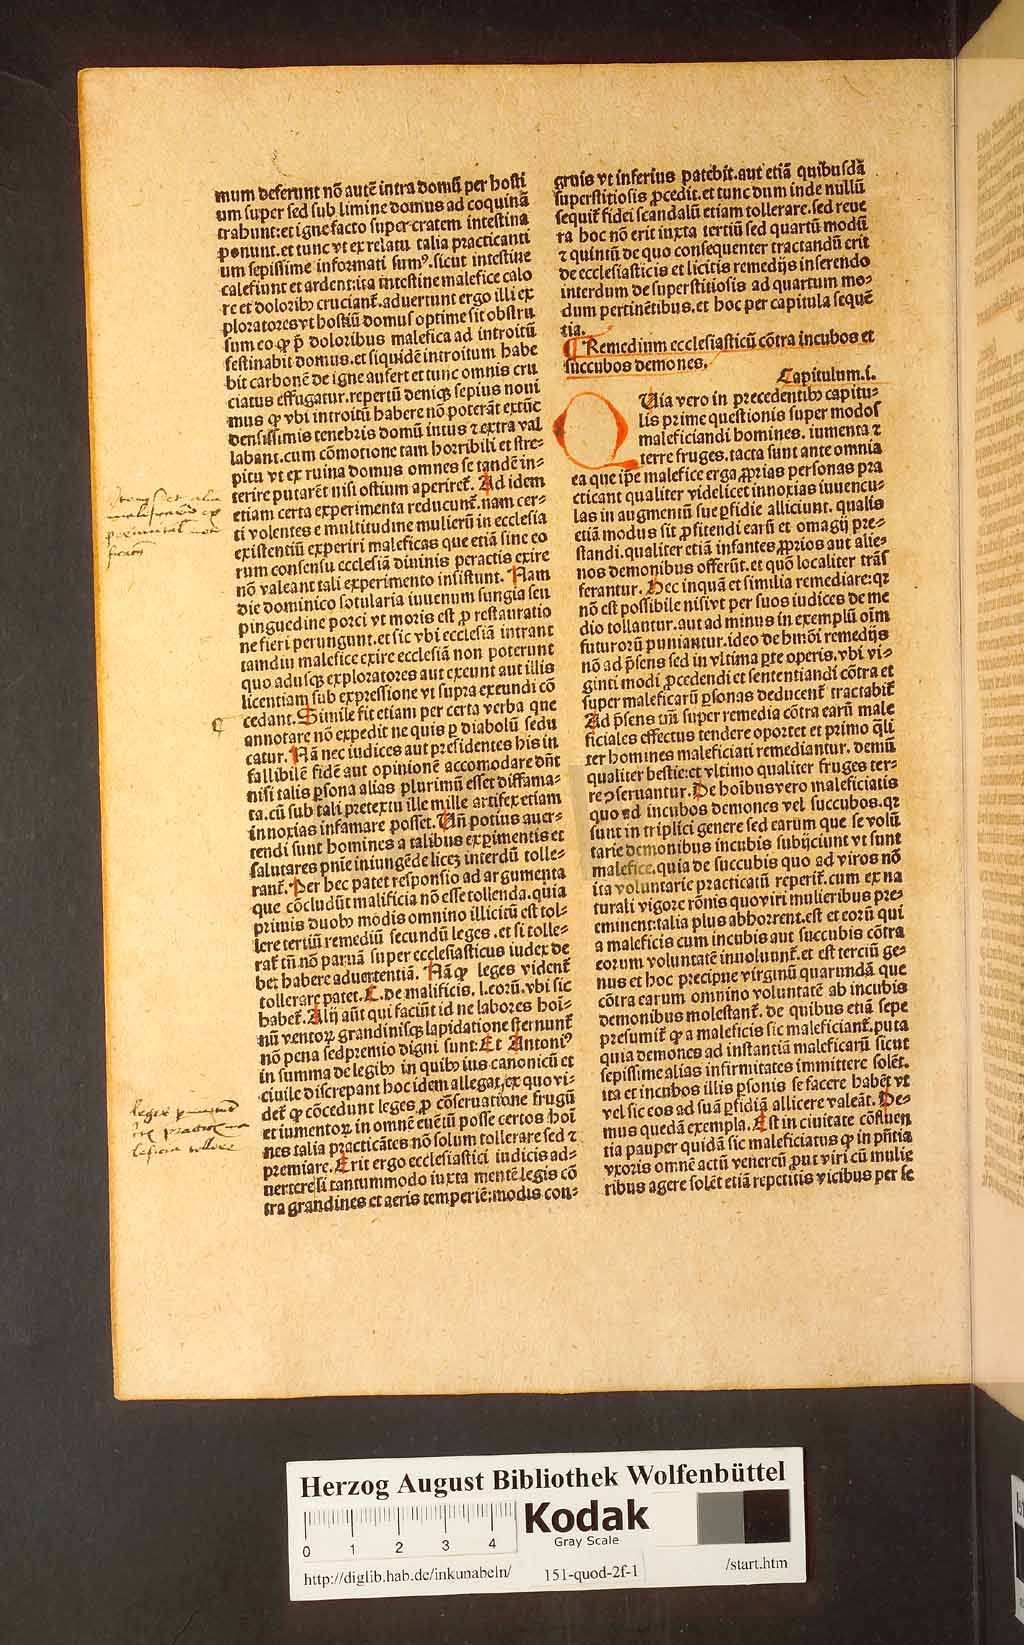 mum deferunt nõ autẽ intra domũ per hosti
um super sed sub limine domus ad coquinã
trahunt: et igne facto super cratem intestina
ponunt. et tunc vt ex relatu talia practicanti
um sepissime informati sumꝰ. sicut intestine
calefiunt et ardent: ita intestine malefice calo
re et doloribꝫ cruciant̃. aduertunt ergo illi ex
ploratores vt hostiũ domus optime sit obstru
sum eo ꝙ p̃ doloribus malefica ad introitũ
festinabit domus. et siquidẽ introitum habe
bit carbonẽ de igne aufert et tunc omnis cru
ciatus effugatur. repertũ deniqꝫ sepius noui
mus ꝙ vbi introitũ habere nõ poterãt extũc
densissimis tenebris domũ intus ⁊ extra val
labant. cum cõmotione tam horribili et stre⸗
pitu vt ex ruina domus omnes se tandẽ in⸗
terire putarẽt nisi ostium aperiret̃. Ad idem
etiam certa experimenta reducunt̃. nam cer⸗
ti volentes e multitudine mulierũ in ecclesia
existentiũ experiri maleficas que etiã sine eo
rum consensu ecclesiã diuinis peractis exire
nõ valeant tali experimento insistunt. Nam
die dominico sotularia iuuenum sungia seu
pinguedine porci vt moris est ꝓ restauratio
ne fieri perungunt. et sic vbi ecclesiã intrant
tamdiu malefice exire ecclesiã non poterunt
quo adusqꝫ exploratores aut exeunt aut illis
licentiam sub expressione vt supra exeundi cõ
cedant. Simile fit etiam per certa verba que
annotare nõ expedit ne quis ꝑ diabolũ sedu
catur. Nã nec iudices aut presidentes his in
fallibilẽ fidẽ aut opinionẽ accomodare dñt
nisi talis ꝑsona alias plurimũ esset diffama⸗
ta. cũ sub tali pretextu ille mille artifex etiam
innoxias infamare posset. Vñ potius auer⸗
tendi sunt homines a talibus exꝑimentis et
salutares pnĩe iniungẽde licꝫ interdũ tolle⸗
rant̃. Per hec patet responsio ad argumenta
que cõcludũt malificia nõ esse tollenda. quia
primis duobꝫ modis omnino illicitũ est tol⸗
lere tertiũ remediũ secundũ leges. et si tolle⸗
rat̃ tñ nõ paruã super ecclesiasticus iudex de
bet habere aduertentiã. Nã ꝙ leges vident̃
tollerare patet. C. de malificis. l. eorũ. vbi sic
habet̃. Alij aũt qui faciũt id ne labores hoĩ⸗
nũ ventoꝝ grandinisqꝫ lapidatione sternunt̃
nõ pena sed premio digni sunt. Et Antoniꝰ
in summa de legibꝫ in quibꝫ ius canonicũ et
ciuile discrepant hoc idem allegat, ex quo vi⸗
det̃ ꝙ cõcedunt leges ꝓ cõseruatione frugũ
et iumentoꝝ in omnẽ euẽtũ posse certos hoĩ
nes talia practicãtes nõ solum tollerare sed ⁊
premiare. Erit ergo ecclesiastici iudicis ad⸗
uertere si tantummodo iuxta mentẽ legis cõ
tra grandines et aeris temperiẽ: modis con⸗
gruis vt inferius patebit. aut etiã quibusdã
superstitiosis ꝓcedit. et tunc dum inde nullũ
sequit̃ fidei scandalũ etiam tollerare. sed reue
ra hoc nõ erit iuxta tertiũ sed quartũ modũ
⁊ quintũ de quo consequenter tractandũ erit
de ecclesiasticis et licitis remedijs inserendo
interdum de superstitiosis ad quartum mo⸗
dum pertinẽtibus. et hoc per capitula sequẽ
tia.
¶ Remedium ecclesiasticũ cõtra incubos et
succubos demones.
Capitulum. i.
QUia vero in precedentibꝫ capitu⸗
lis prime questionis super modos
maleficiandi homines. iumenta ⁊
terre fruges. tacta sunt ante omnia
ea que ip̃e malefice erga ꝓprias personas pra
cticant qualiter videlicet innoxias iuuencu⸗
las in augmentũ sue ꝑfidie alliciunt. qualis
etiã modus sit ꝓfitendi earũ et omagij pre⸗
standi. qualiter etiã infantes ꝓprios aut alie⸗
nos demonibus offerũt. et quõ localiter trãs
ferantur. Hec inquã et similia remediare: qꝛ
nõ est possibile nisi vt per suos iudices de me
dio tollantur. aut ad minus in exemplũ oĩm
futurorũ puniantur. ideo de hmõi remedijs
nõ ad p̃sens sed in vltima ꝑte operis. vbi vi⸗
ginti modi ꝓcedendi et sententiandi cõtra et
super maleficarũ ꝑsonas deducent̃ tractabit̃
Ad p̃sens tñ super remedia cõtra earũ male
ficiales effectus tendere oportet et primo q̃li
ter homines maleficiati remediantur. demũ
qualiter bestie: et vltimo qualiter fruges ter⸗
re ꝯseruantur. De hoĩbus vero maleficiatis
quo ad incubos demones vel succubos. qꝛ
sunt in triplici genere sed earum que se volũ
tarie demonibus incubis subijciunt vt sunt
malefice. quia de succubis quo ad viros nõ
ita voluntarie practicatũ reperit̃. cum ex na
turali vigore rõnis quo viri mulieribus pre⸗
eminent: talia plus abhorrent. est et eorũ qui
a maleficis cum incubis aut succubis cõtra
eorum voluntatẽ inuoluunt̃. et est terciũ ge⸗
nus et hoc precipue virginũ quarundã que
cõtra earum omnino voluntatẽ ab incubis
demonibus molestant̃. de quibus etiã sepe
presumit̃ ꝙ a maleficis sic maleficiant̃. puta
quia demones ad instantiã maleficarũ sicut
sepissime alias infirmitates immittere solẽt.
ita et incubos illis ꝑsonis se facere habẽt vt
vel sic eos ad suã ꝑfidiã allicere valeãt. De⸗
mus quedã exempla. Est in ciuitate cõfluen
tia pauper quidã sic maleficiatus ꝙ in p̃ntia
vxoris omnẽ actũ venereũ ꝓut viri cũ mulie
ribus agere solẽt etiã repetitis vicibus per se
Herzog August Bibliothek Wolfenbüttel
0 1 2 3 4
Kodak
Gray Scale
http://diglib.hab.de/inkunabeln/
151-quod-2f-1
/start.htm